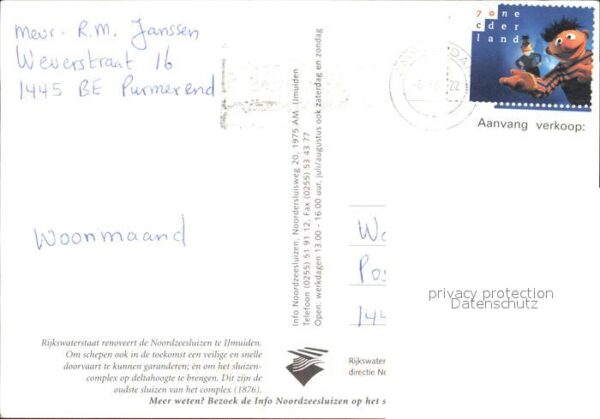 Mevr. R.M. Janssen
Weverstraat 16
1445 BE Purmerend
70 ne
c der
land
Aanvang verkoop:
Woonmaand
Info Noordzeesluizen, Noordersluisweg 20, 1975 AM IJmuiden
Telefoon (0255) 51 91 12, Fax (0255) 53 43 77
Open: werkdagen 13.00 - 16.00 uur, juli/augustus ook zaterdag en zondag
Wo
Pos
144
privacy protection
Datenschutz
Rijkswaterstaat renoveert de Noordzeesluizen te IJmuiden.
Om schepen ook in de toekomst een veilige en snelle
doorvaart te kunnen garanderen; én om het sluizen-
complex op deltahoogte te brengen. Dit zijn de
oudste sluizen van het complex (1876).
Rijkswater
directie No
Meer weten? Bezoek de Info Noordzeesluizen op het s